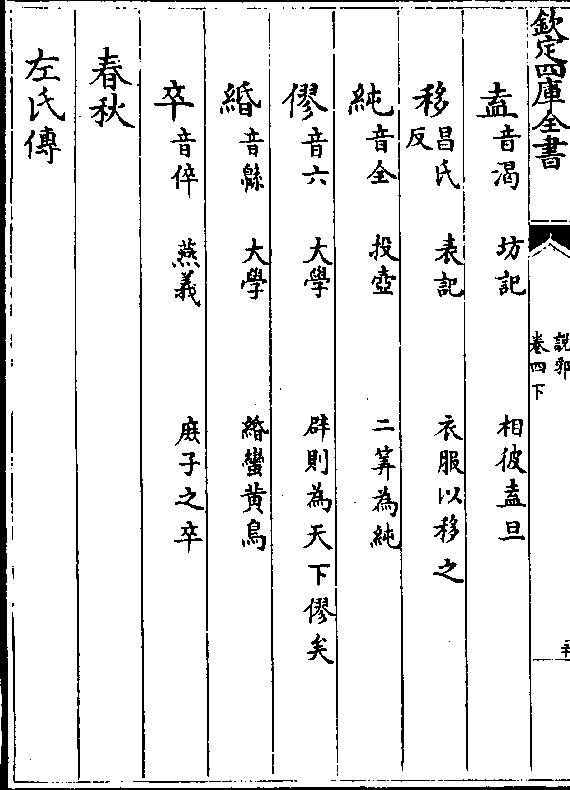 欽定四庫全書
說郛
卷四下
盍音渴 坊記 相彼盍旦
移昌氏反 表記 衣服以移之
純音全 投壺 二筭為純
僇音六 大學 辟則為天下僇矣
緡音緜 大學 緡蠻黄鳥
卒音倅 燕義 庶子之卒
春秋
左氏傳